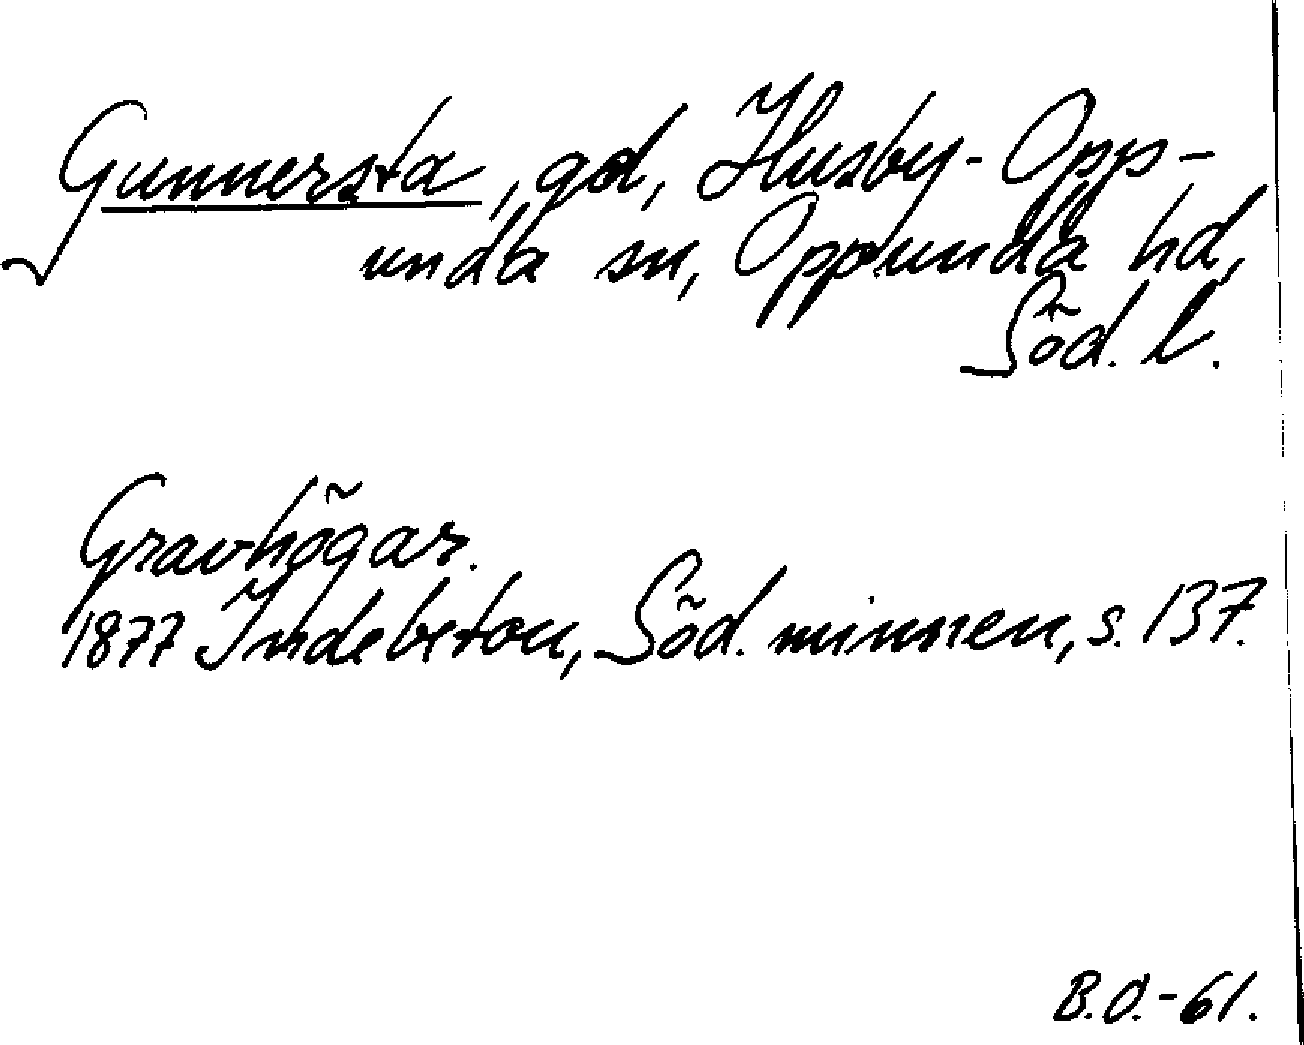 Gunnersta, gd, Husby-Opp-
unda sn, Oppunda hd,
Söd. l.
Gravhögar.
1877 Indebetou, Söd. minnen, s. 137.
B.O.-61.